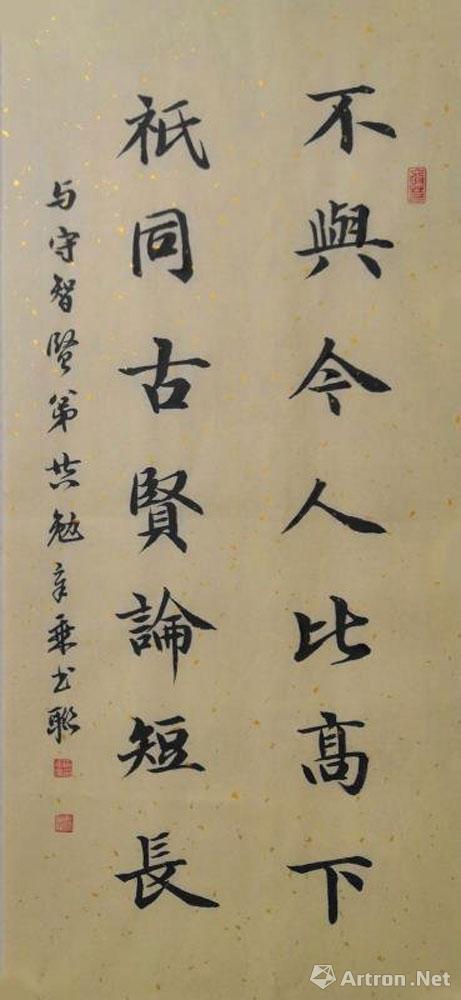 不與今人比高下
祇同古賢論短長
与守智賢弟共勉辛乗书聯
Artron.Net